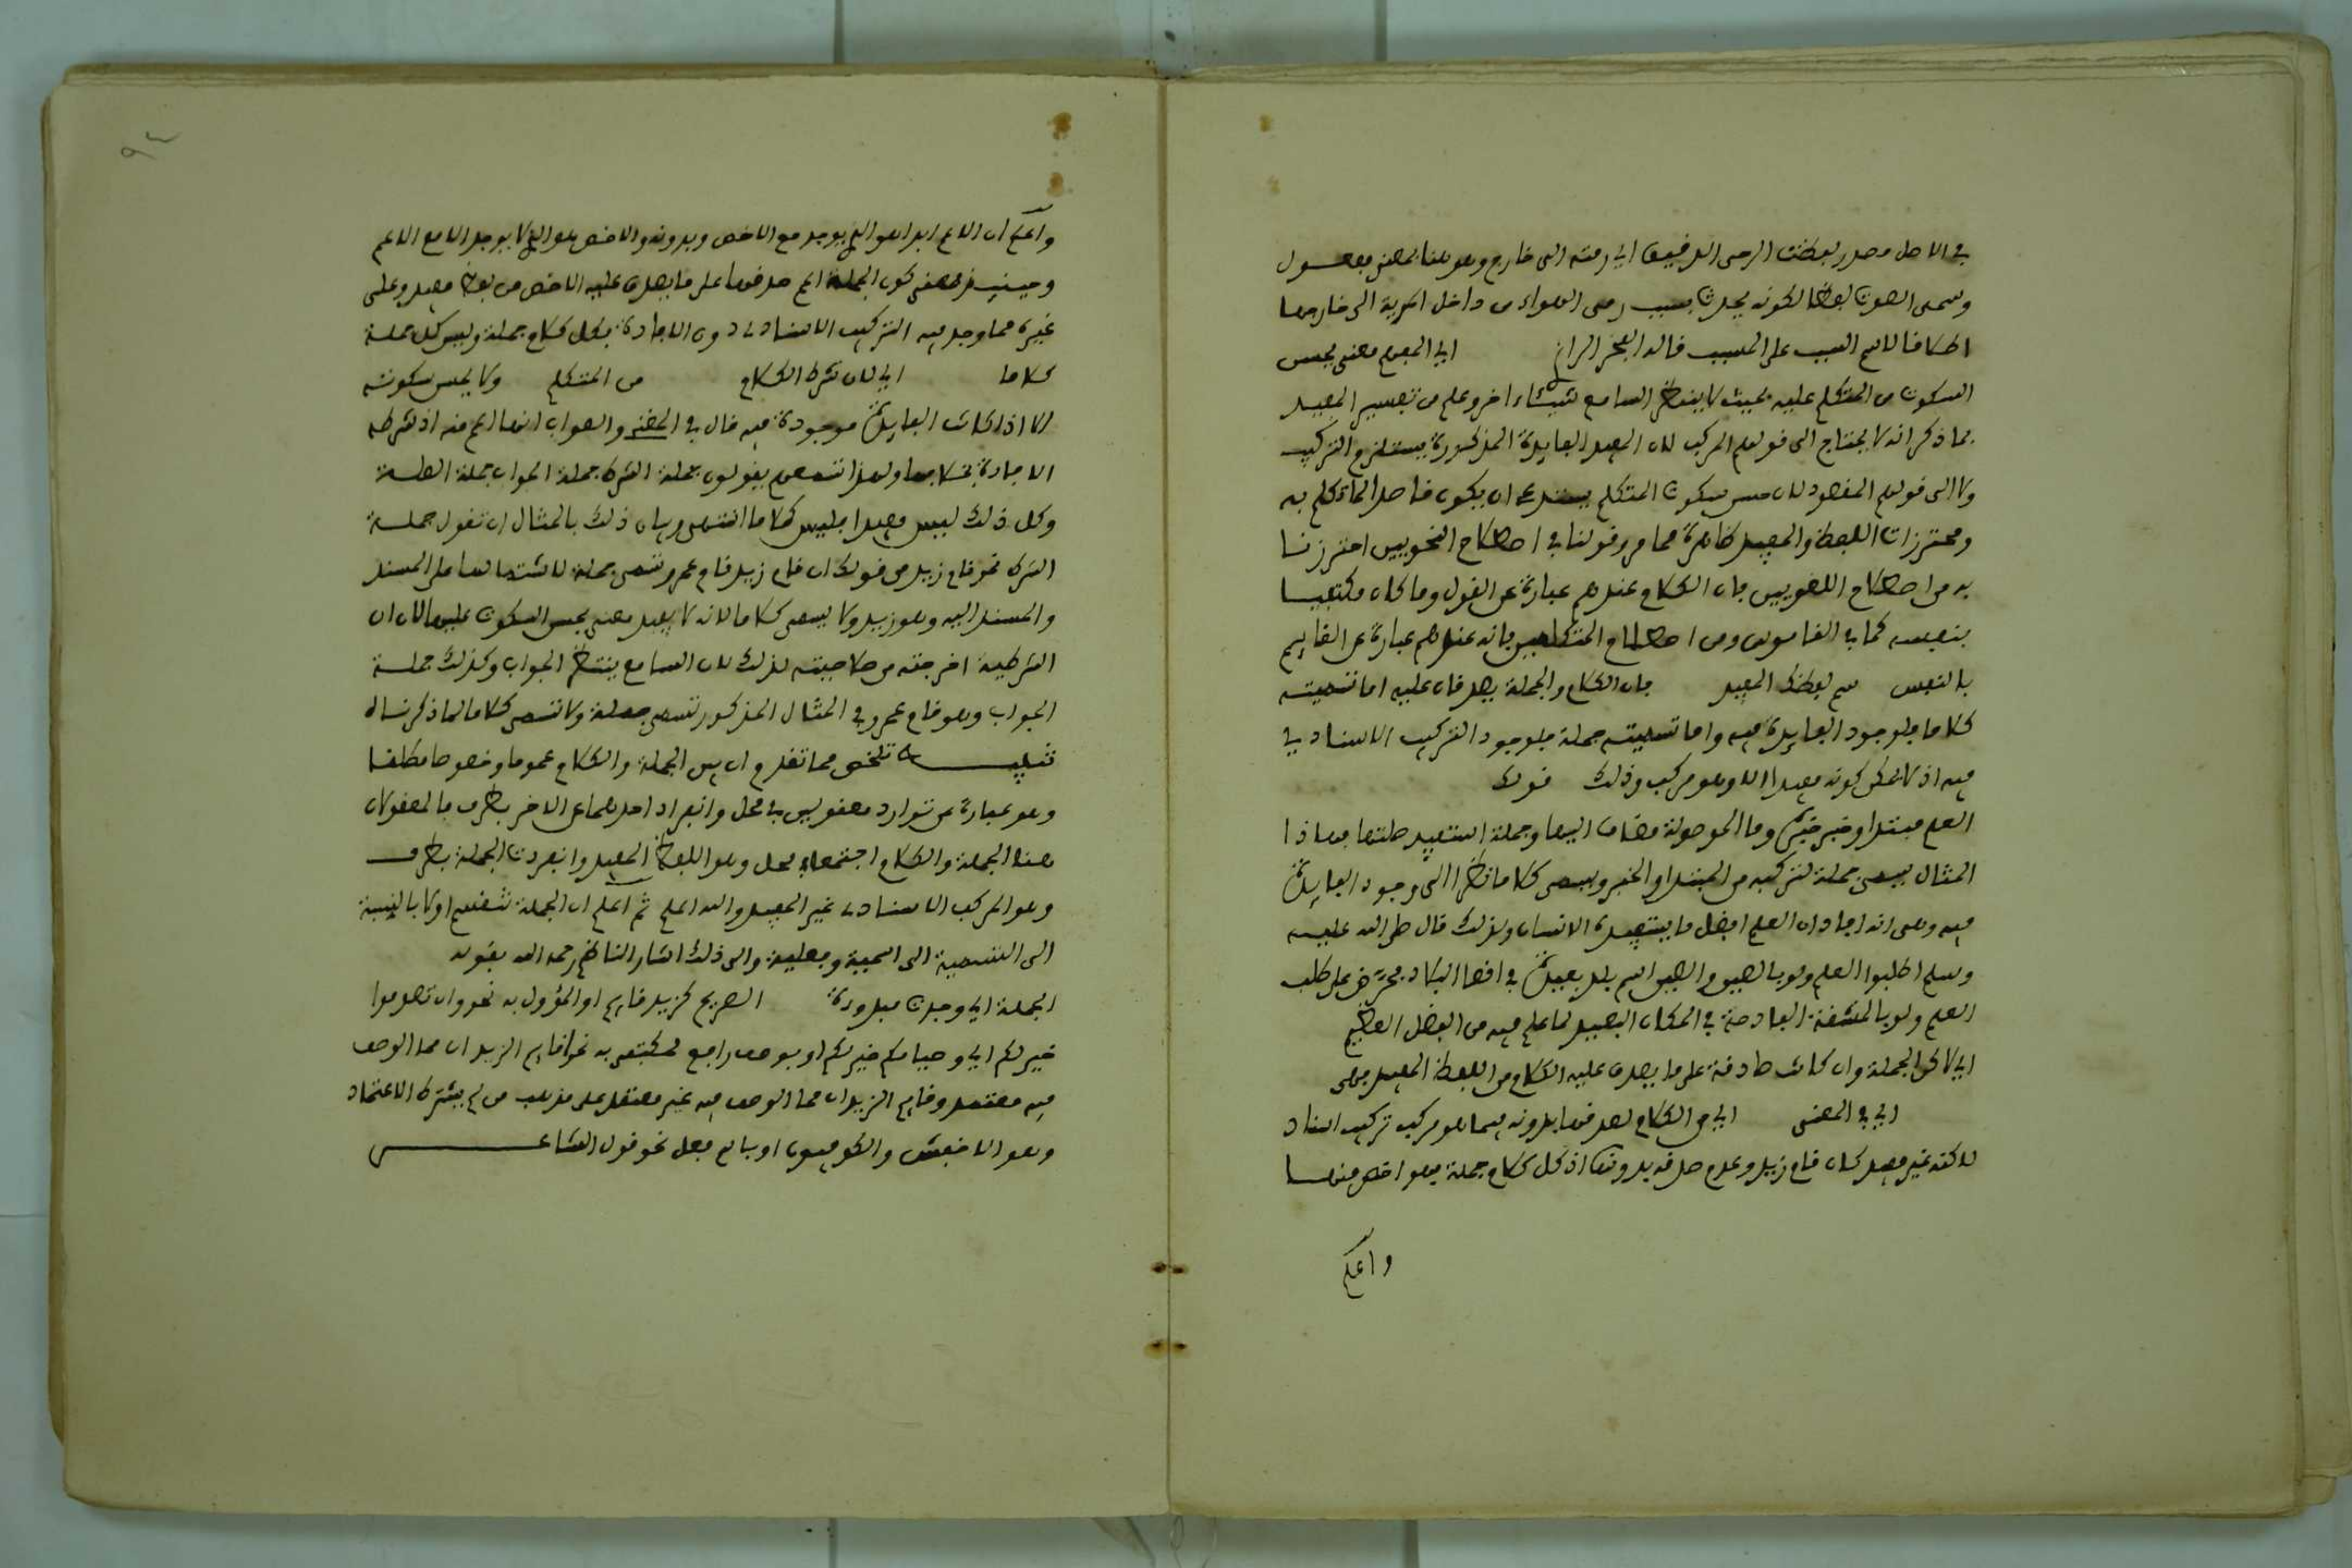 في الاصل مصدر لفظت الرحى الدقيق اي رمته الى خارج وهو هنا بمعنى مفعول
وسمى الصوت لفظا لكونه يحدث بسبب رمى الهواء من داخل الرية الى خارجها
اطلاقا لاسم السبب على المسبب قاله الفخر الرازي اي المفهم معنى يحسن
السكوت من المتكلم عليه بحيث لا ينتظر السامع لشيء اخر وعلم من تفسير المفيد
بما ذكر انه لا يحتاج الى قولهم المركب لان المفيد الفايدة المذكورة يستلزم التركيب
ولا الى قولهم المقصود لان حسن سكوت المتكلم يستدعي ان يكون قاصدا لما تكلم به
ومحترزات اللفظ والمفيد ظاهرة مما مر وقولنا في اصطلاح النحويين احترزنا
به من اصطلاح اللغويين فان الكلام عندهم عبارة عن القول وما كان مكتفيا
بنفسه كما في القاموس ومن اصطلاح المتكلمين فانه عندهم عبارة عن القايم
بالنفس سم لفظك المفيد فان الكلام والجملة يصدقان عليه اما تسميته
كلاما فلوجود الفايدة فيه واما تسميته جملة فلوجود التركيب الاسنادي
فيه اذ لا يمكن كونه مفيدا الا وهو مركب وذلك قولك
العلم مبتدا وخبر خبره وما الموصولة مضاف اليها وجملة استفيد صلتها فهاذا
المثال يسمى جملة لتركبه من المبتدا والخبر ويسمى كلاما نظرا الى وجود الفايدة
فيه وهى انه افاد ان العلم افضل ما يستفيده الانسان ولذلك قال صلى الله عليه
وسلم اطلبوا العلم ولو بالصين والصين اسم بلد بعيدة في اقصا البلاد فحرّض على طلب
العلم ولو بالمشقة الفادحة في المكان البعيد لما علم فيه من الفضل العظيم
اي لاكن الجملة وان كانت صادقة على ما يصدق عليه الكلام من اللفظ المفيد فهى
اي في المعنى اي من الكلام لصدقها بدونه فيما هو مركب تركيب اسناد
لاكنه غير مفيد كان قام زيد وعدم صدقه بدونها اذ كل كلام جملة فهو اخص منها
واعلم
واعلم ان الاعم ابدا هو الذي يوجد مع الاخص وبدونه والاخص هو الذي لا يوجد الا مع الاعم
وحينيذ فمعنى كون الجملة اعم صدقها على ما يصدق عليه الاخص من لفظ مفيد وعلى
غيره مما وجد فيه التركيب الاسنادي دون الافادة فكل كلام جملة وليس كل جملة
كلاما اي لان شرط الكلام من المتكلم ولا يحسن سكوته
الا اذا كانت الفايدة موجودة فيه قال في المغنى والصواب انها اعم منه اذ شرطه
الافادة بخلافها ولهذا تسمعهم يقولون جملة الشرط جملة الجواب جملة الصلة
وكل ذلك ليس مفيدا فليس كلاما انتهى وبيان ذلك بالمثال ان تقول جملة
الشرط نحو قام زيد من قولك ان قام زيد قام عمرو تسمى جملة لاشتمالها على المسند
والمسند اليه وهو زيد ولا يسمى كلاما لانه لا يفيد معنى يحسن السكوت عليها لان ان
الشرطية اخرجته من صلاحيته لذلك لان السامع ينتظر الجواب وكذلك جملة
الجواب وهو قام عمرو في المثال المذكور تسمى جملة ولا تسمى كلاما لما ذكرناه
تنبيه تلخص مما تقدم ان بين الجملة والكلام عموما وخصوصا مطلقا
وهو عبارة عن توارد معقولين في محل وانفراد احدهما عن الاخر بطرف فالمعقولان
هنا الجملة والكلام اجتمعا في محل وهو اللفظ المفيد وانفردت الجملة بطرف
وهو المركب الاسنادي غير المفيد والله اعلم ثم اعلم ان الجملة تنقسم اولا بالنسبة
الى التسمية الى اسمية وفعلية والى ذلك اشار الناظم رحمه الله بقوله
الجملة اي وجدت مبدوءة الصريح كزيد قايم او المؤول به نحو وان تصوموا
خير لكم اي وصيامكم خير لكم او بوصف رافع لمكتفى به نحو اقايم الزيدان مما الوصف
فيه معتمد وقايم الزيدان مما الوصف فيه غير معتمد على مذهب من لم يشترط الاعتماد
وهو الاخفش والكوفيون او باسم فعل نحو قول الشاعر